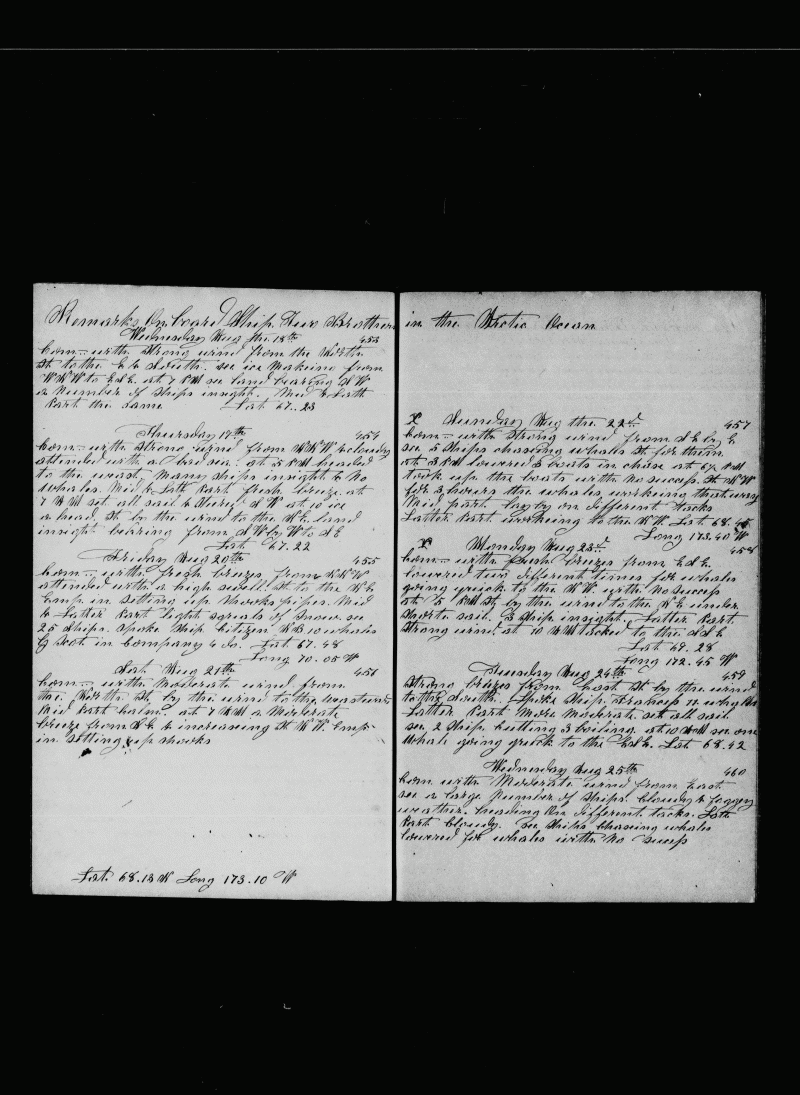 Remarks On board Ship Two Brothers
Wednesday Aug the 18th 453
Com— with Strong wind from the North
St to the E & South. see ice Making from
WNW to ESE at 7 PM see land bearing SW
a Number of Ships insight. Mid & Lath
Part the Same Lat 67.23
Thursday 19th 454
Com— with Strong wind from NNW & cloudy
attended with a bad sea. at 5 PM headed
to the west. Many Ships insight & No
whales. Mid & Lath Part fresh breeze. at
7 AM set all sail & Steerd SW at 10 ice
a head. St by the wind to the SE. land
insight bearing from SW by W to SE
Lat 67.22
Friday Aug 20th 455
Com— with fresh breezes from NNW
attended with a high swell. St to the NE
Emp in setting up Shooks pipes. Mid
& Latter Part light squals of Snow. see
25 Ships. Spoke Ship Citizen NB 10 whales
G Scot in Company 6 Do. Lat 67.48
Long 70.05 W
Sat Aug 21th 456
Com— with Moderate wind from
the North St by the wind to the Eastward
Mid Part calm. at 7 AM a Moderate
breeze from SE & increasing St NW. Emp
in Setting up Shooks
Lat 68.13 N Long 173.10 W
in the Arctic Ocean
X Sunday Aug the 22d 457
Com— with Strong wind from SE by E
see 5 Ships chasing whales St for them
at 3 PM lowered 3 boats in chase at 6½ PM
took up the boats with No succep. St NW
for 3 hours the whales working that way
Mid part lay by on different tacks
Latter Part working to the NW. Lat 68.45
Long 173.40 W
X Monday Aug 23d 458
Com— with fresh breezes from ESE
lowered two different times for whales
going quick to the NW. with No succep
at 5 PM St by the wind to the NE under
Shorte sail. 3 Ship insight. Latter Part
Strong wind at 10 AM tacked to the SSE
Lat 69.28
Long 172.45 W
Tuesday Aug 24th 459
Strong breezes from East St by the wind
to the South. Spoke Ship
Latter Part More Moderate set all sail
see 2 Ship cutting 3 boiling. at 10 AM see one
Whale going quick to the ESE. Lat 68.42
Wednesday Aug 25th 460
Com with Moderate wind from East
see a large Number of Ships. Cloudy & foggey
weather. heading On different tacks. Lath
Part Cloudy. See Ships Chasing whales
lowered for whales with No succep